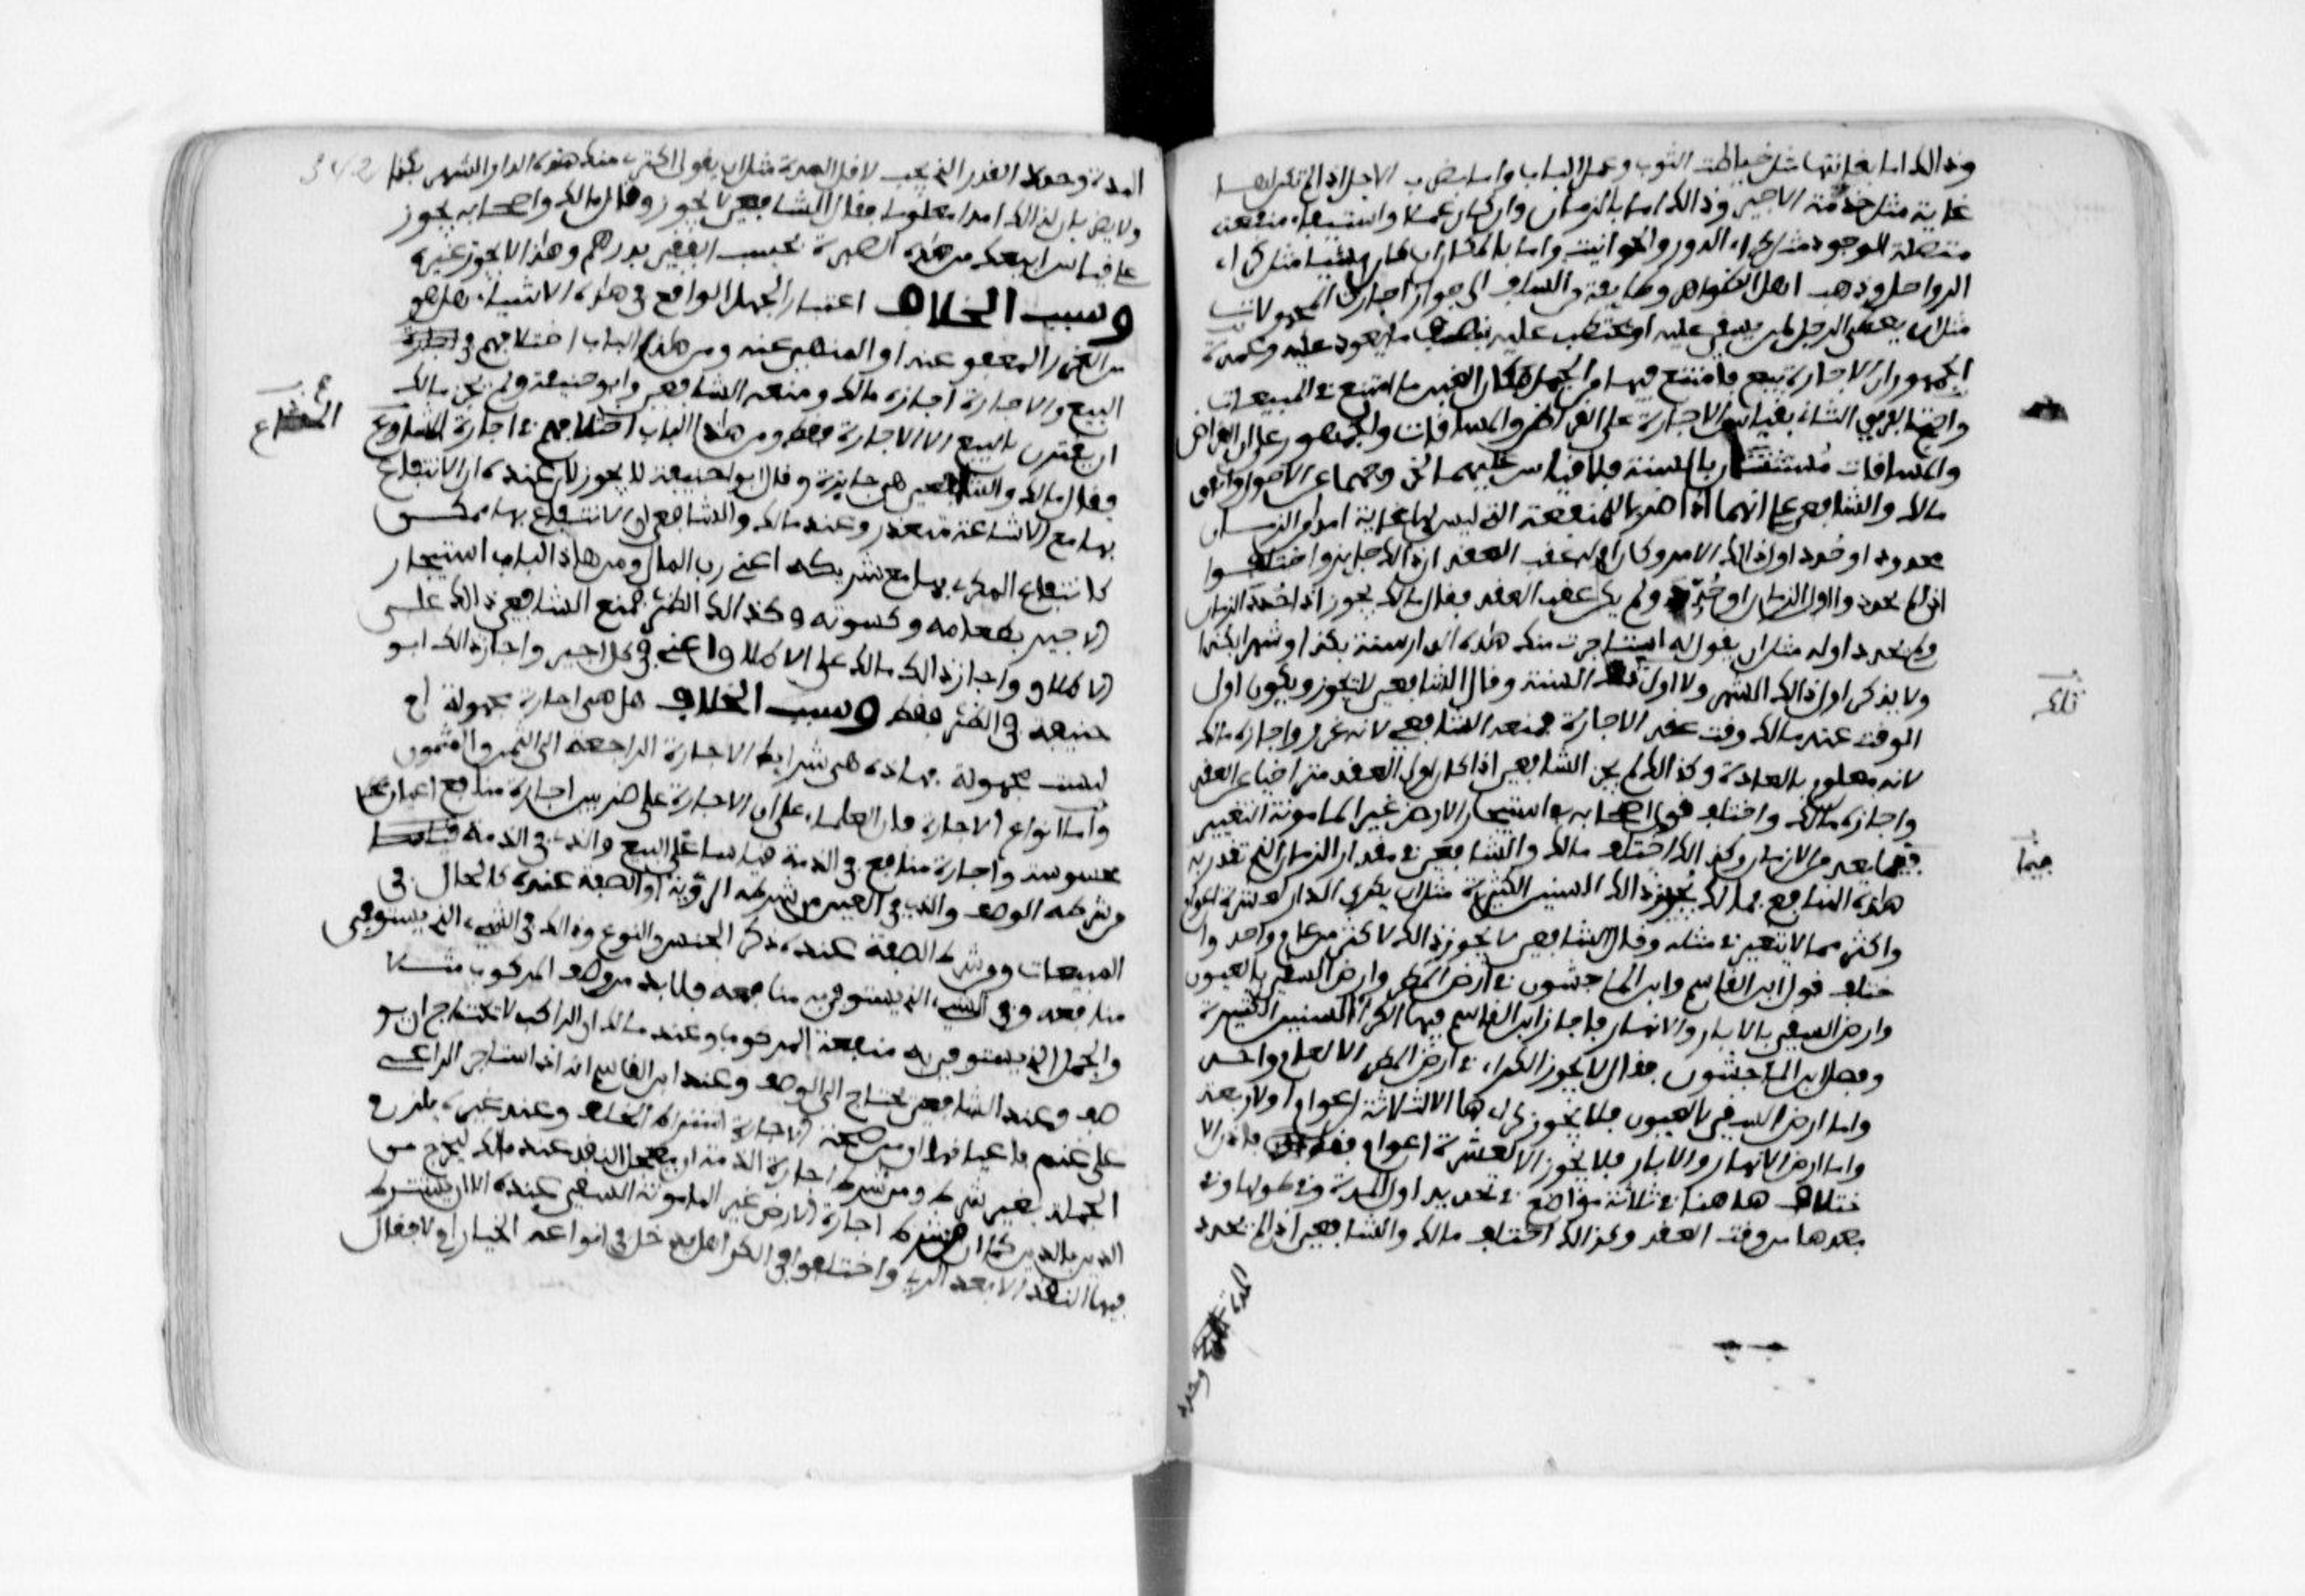 وذالك اما بغايتها مثل خياطت الثوب وعمل الباب واما بضرب الاجل اذا لم تكن لها
غاية مثل خدمة الاجير وذالك اما بالزمان وان كان عملا واستيفاء منفعة
متصلة الوجود مثل كراء الدور والحوانيت واما بالمكان ان كان مشيا مثل كراء
الرواحل وذهب اهل الظواهر وطايفة من السلف الى جواز اجارات المجهولات
مثل ان يعطى الرجل لمن يسقى عليه او يحتطب عليه بنصف ما يعود عليه وعمدة
الجمهور ان الاجارة بيع فامتنع فيها من الجهل لمكان الغبن ما امتنع في المبيعات
واحتج الفريق الثانى بقياس الاجارة على القراض والمساقات والجمهور على ان القراض
والمساقات مستثنيان بالسنة فلا قياس عليهما لخروجهما عن الاصول واتفق
مالك والشافعى على انهما اذا ضربا للمنفعة التى ليس لها غاية امدا من الزمان
محدودا وحددا اول ذالك الامد وكان اوله عقب العقد ان ذالك جايز واختلفوا
اذا لم يحددوا اول الزمان او حددوه ولم يكن عقب العقد فقال مالك يجوز اذا حدد الزمان
ولم يحدد اوله مثل ان يقول له استاجرت منك هذه الدار سنة بكذا او شهرا بكذا
ولا يذكر اول ذالك الشهر ولا اول تلك السنة وقال الشافعى لا يجوز ويكون اول
الوقت عند مالك وقت عقد الاجارة فمنعه الشافعى لانه غرر واجازه مالك
لانه معلوم بالعادة وكذالك لم يجز الشافعى اذا كان اول العقد متراخيا عن العقد
واجازه مالك واختلف قول اصحابه في استيجار الارض غير المامونة التغيير
فيما بعد من الازمان وكذالك اختلف مالك والشافعى في مقدار الزمان التى تقدر به
هاذه المنافع فمالك يجيز ذالك السنين الكثيرة مثل ان يكرى الدار لعشرة اعوام
واكثر مما لا تتغير في مثله وقال الشافعى لا يجوز ذالك لاكثر من عام واحد وا
ختلف قول ابن القاسم وابن الماجشون في ارض المطر وارض السقى بالعيون
وارض السقى بالابار والانهار فاجاز ابن القاسم فيها الكراء السنين الكثيرة
وفصل ابن الماجشون فقال لا يجوز الكراء في ارض المطر الا لعام واحد
واما ارض السقى بالعيون فلا يجوز كراءها الا لثلاثة اعوام او لاربعة
واما ارض الانهار والابار فلا يجوز الا لعشرة اعوام فقط فالا
ختلاف هاهنا في ثلاثة مواضع في تحديد اول المدة وفي طولها وفي
بعدها من وقت العقد وكذالك اختلف مالك والشافعى اذا لم يحدد
تلك
فيما
المدة وحدد القدر الذى يجب لاقل المدة مثل ان يقول اكترى منك هذه الدار الشهر بكذا
ولا يضربان لذالك امدا معلوما فقال الشافعى لا يجوز وقال مالك واصحابه يجوز
على قياس ابيعك من هذه الصبرة بحسب القفيز بدرهم وهذا لا يجوز غيره
وسبب الخلاف اعتبار الجهل الواقع في هاذه الاشياء هل هو
من الغرر المعفو عنه او المنهى عنه ومن هاذا الباب اختلافهم في
البيع والاجارة اجازه مالك ومنعه الشافعى وابو حنيفة ولم يجز مالك
ان يقترن بالبيع الا الاجارة فقط ومن هاذا الباب اختلافهم في اجارة المشاع
فقال مالك والشافعى هى جايزة وقال ابو حنيفة لا يجوز لان عنده ان الانتفاع
بها مع الاشاعة متعذر وعند مالك والشافعى ان الانتفاع بها ممكن
كانتفاع المكرى بها مع شريكه اعنى رب المال ومن هاذا الباب استيجار
الاجير بطعامه وكسوته وكذالك الظئر فمنع الشافعى ذالك على
الاطلاق واجاز ذالك مالك على الاطلاق اعنى في كل اجير واجاز ذالك ابو
حنيفة في الظئر فقط وسبب الخلاف هل هى اجارة مجهولة ام
ليست مجهولة فهاذه هى شرايط الاجارة الراجعة الى الثمن والمثمون
واما انواع الاجارة فان العلماء على ان الاجارة على ضربين اجارة منافع اعيان
محسوسة واجارة منافع في الذمة قياسا على البيع والذى في الذمة
من شرطه الوصف والذى في العين من شرطه الرؤية او الصفة عنده كالحال في
المبيعات ومن شرط الصفة عنده ذكر الجنس والنوع وذالك في الشىء الذى يستوفى
منافعه وفي الشىء الذى يستوفى به منافعه فلا بد من وصف المركوب مثلا
والحمل الذى يستوفى به منفعة المركوب وعند مالك ان الراكب لا يحتاج ان يو
صف وعند الشافعى يحتاج الى الوصف وعند ابن القاسم انه اذا استاجر الراعى
على غنم باعيانها ان من صحة الاجارة اشتراط الخلف وعند غيره يلزم
الجملة بغير شرط ومن شرط اجارة الذمة ان يعجل النقد عند مالك ليخرج من
الدين بالدين كما ان من شرط اجارة الارض غير المامونة السقى عنده الا ان يشترط
فيها النقد الا بعد الرى واختلفوا في الكراء هل يدخل في انواعه الخيار ام لا فقال
المشاع